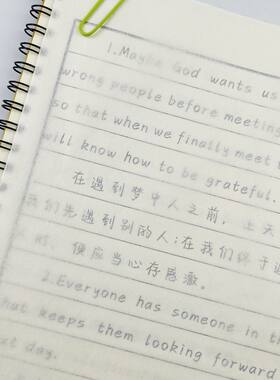 1.Maybe God wants us
wrong people before meeting
so that when we finally meet t
will know how to be grateful.
在遇到梦中人之前，上天
我们先遇到别的人;在我们终于
时，便应当心存感激。
2.Everyone has someone in th
that keeps them looking forward
day.